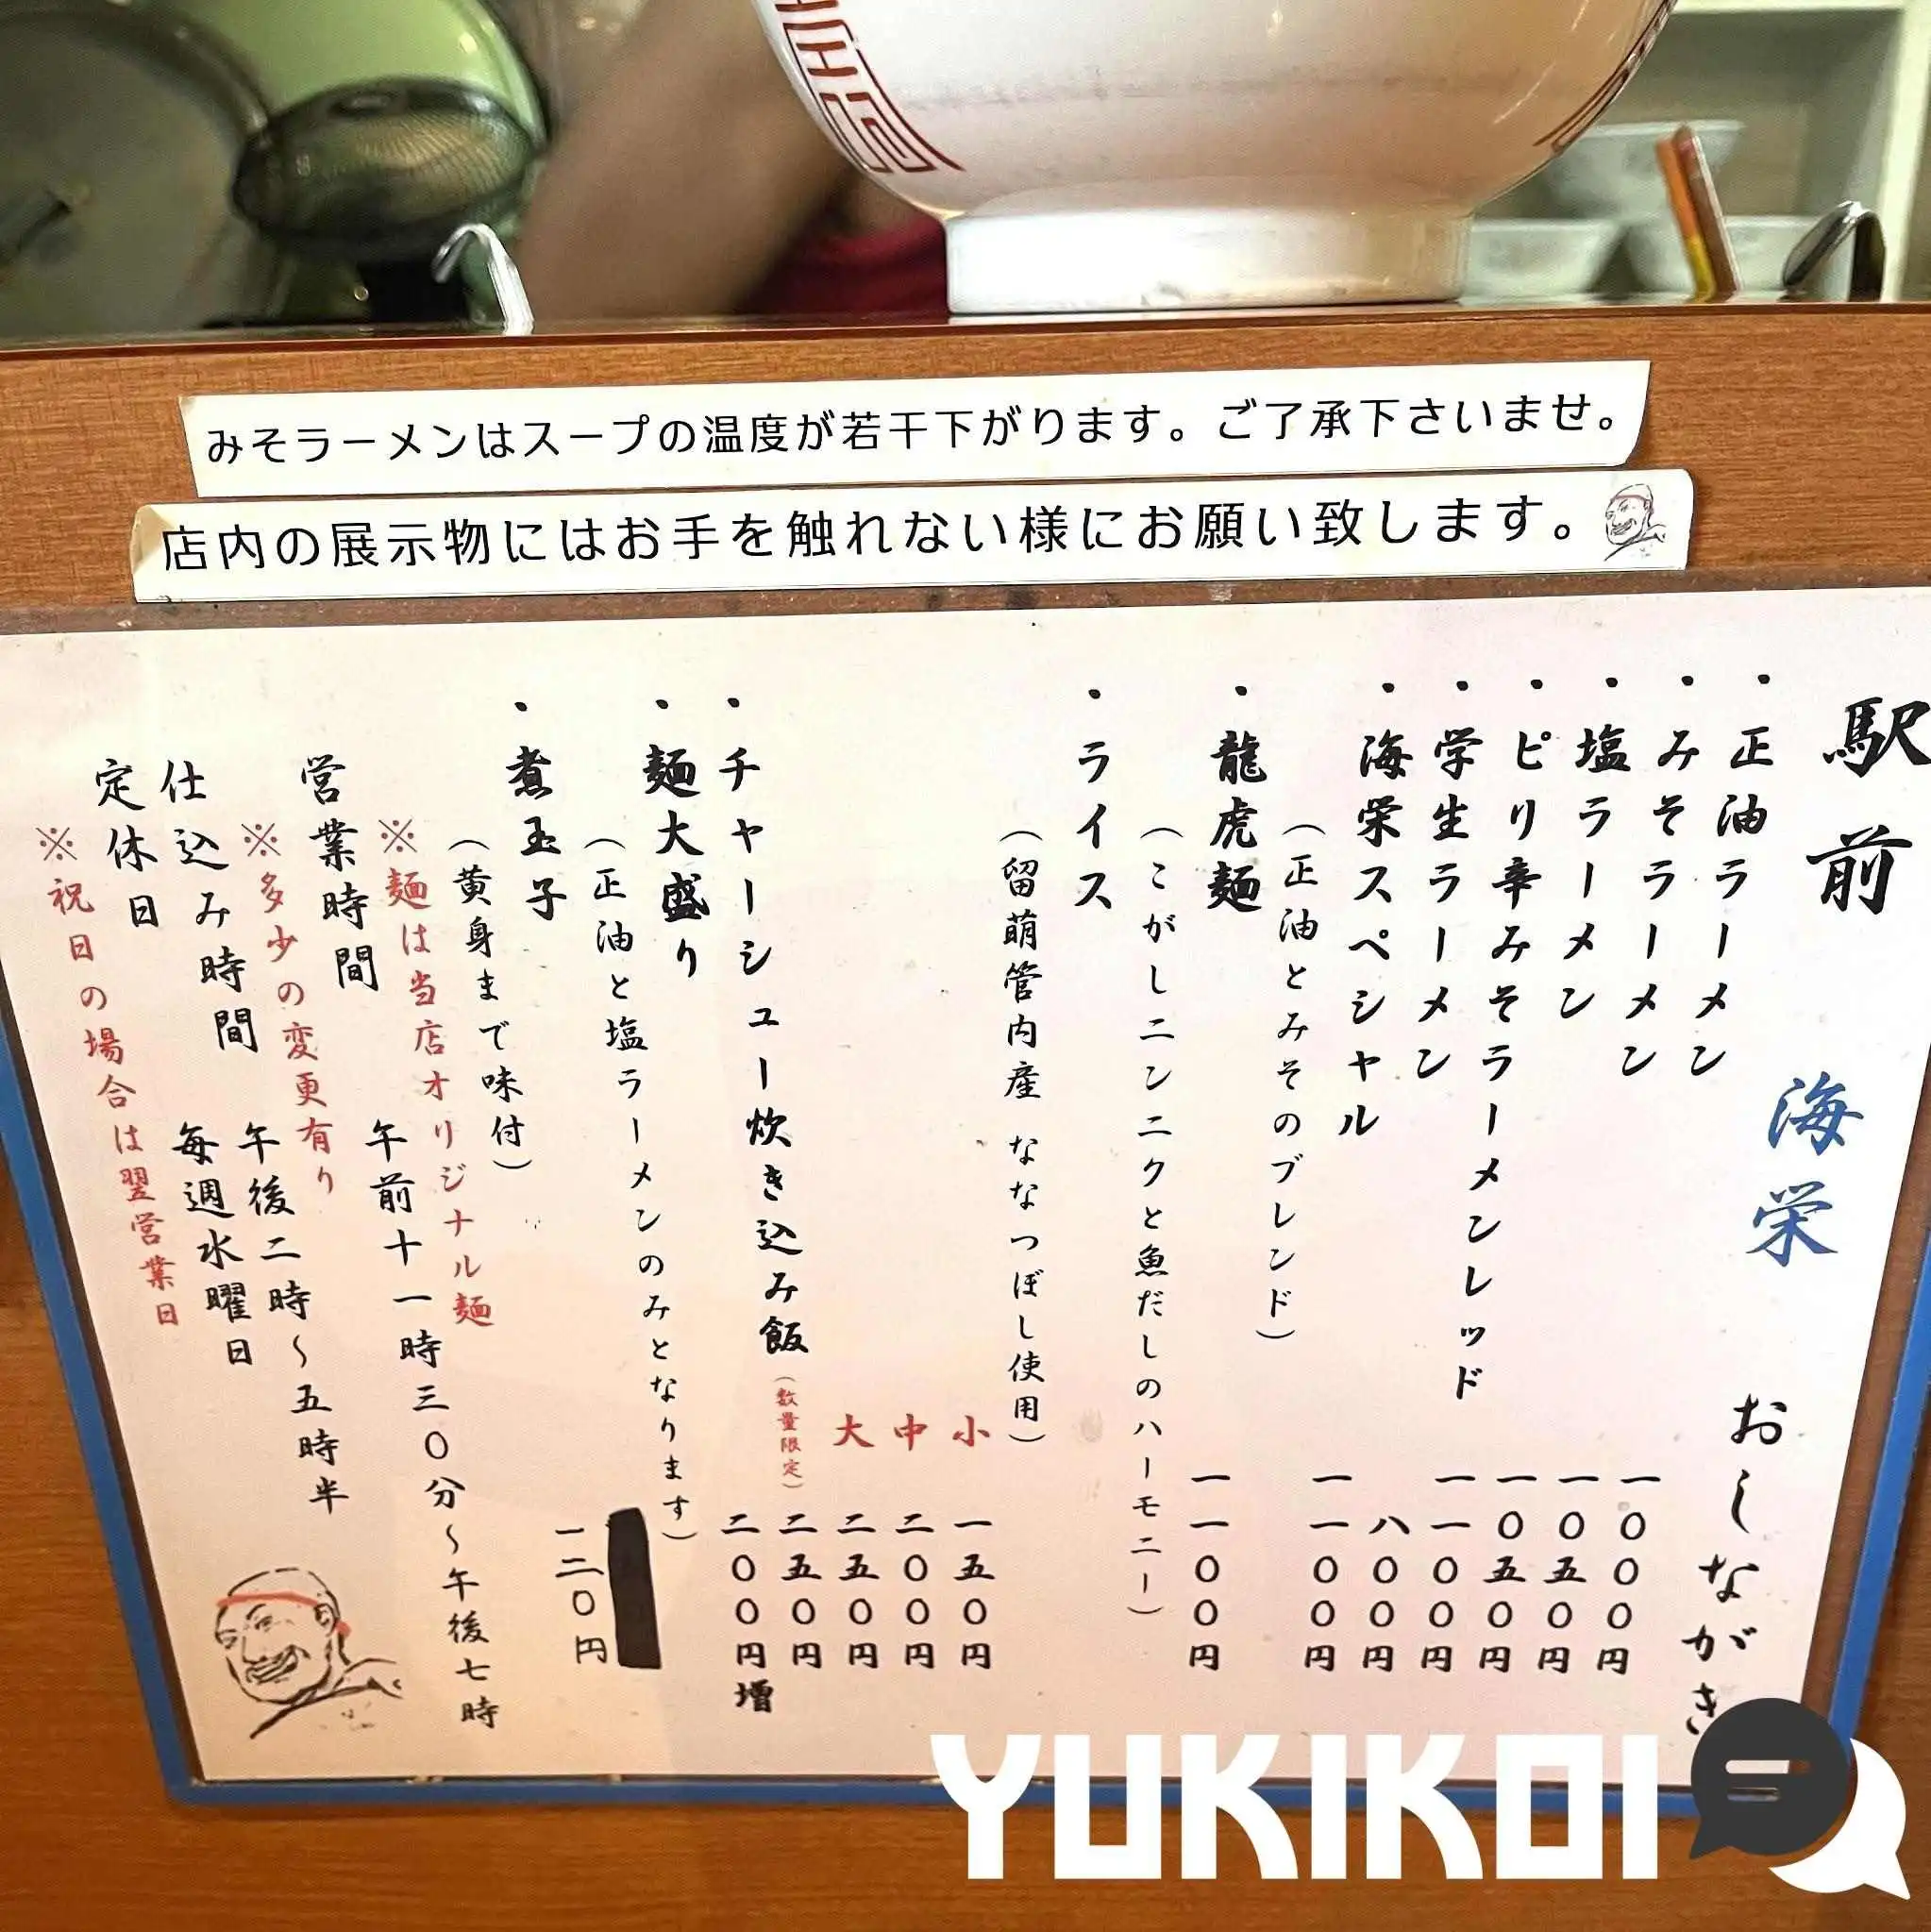 みそラーメンはスープの温度が若干下がります。ご了承下さいませ。
店内の展示物にはお手を触れない様にお願い致します。
駅前 海栄 おしながき
・正油ラーメン 一〇〇〇円
・みそラーメン 一〇五〇円
・塩ラーメン 一〇五〇円
・ピリ辛みそラーメンレッド 一一〇〇円
・学生ラーメン 八〇〇円
・海栄スペシャル 一一〇〇円
（正油とみそのブレンド）
・龍虎麺 一一〇〇円
（こがしニンニクと魚だしのハーモニー）
・ライス
（留萌管内産 ななつぼし使用）
小 一五〇円
中 二〇〇円
大 二五〇円
・チャーシュー炊き込み飯（数量限定） 二五〇円
・麺大盛り 二〇〇円増
（正油と塩ラーメンのみとなります）
・煮玉子 一二〇円
（黄身まで味付）
※麺は当店オリジナル麺
営業時間 午前十一時三〇分〜午後七時
※多少の変更有り
仕込み時間 午後二時〜五時半
定休日 毎週水曜日
※祝日の場合は翌営業日
YUKIKOI